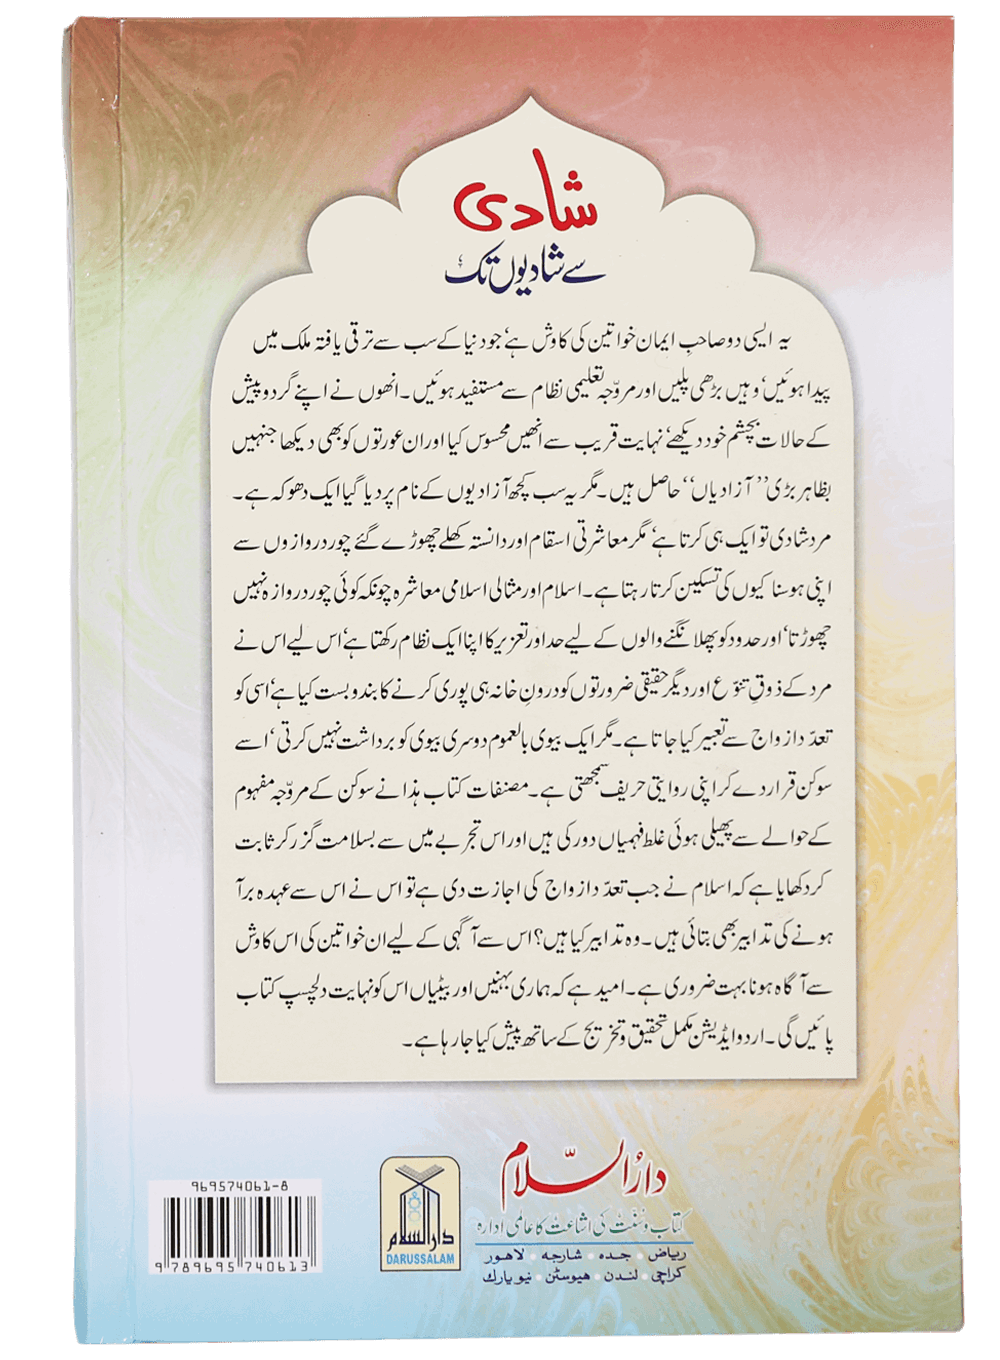 شادی
سے شادیوں تک
یہ ایسی دو صاحبِ ایمان خواتین کی کاوش ہے، جو دنیا کے سب سے ترقی یافتہ ملک میں
پیدا ہوئیں، وہیں بڑھی پلیں اور مروّجہ تعلیمی نظام سے مستفید ہوئیں۔ انھوں نے اپنے گردو پیش
کے حالات بچشم خود دیکھے، نہایت قریب سے انھیں محسوس کیا اور ان عورتوں کو بھی دیکھا جنہیں
بظاہر بڑی ’’آزادیاں‘‘ حاصل ہیں۔ مگر یہ سب کچھ آزادیوں کے نام پر دیا گیا ایک دھوکہ ہے۔
مرد شادی تو ایک ہی کرتا ہے، مگر معاشرتی اسقام اور دانستہ کھلے چھوڑے گئے چور دروازوں سے
اپنی ہوسنا کیوں کی تسکین کرتا رہتا ہے۔ اسلام اور مثالی اسلامی معاشرہ چونکہ کوئی چور دروازہ نہیں
چھوڑتا، اور حدود کو پھلانگنے والوں کے لیے حد اور تعزیر کا اپنا ایک نظام رکھتا ہے، اس لیے اس نے
مرد کے ذوقِ تنوّع اور دیگر حقیقی ضرورتوں کو درونِ خانہ ہی پوری کرنے کا بندوبست کیا ہے، اسی کو
تعدّد ازواج سے تعبیر کیا جاتا ہے۔ مگر ایک بیوی بالعموم دوسری بیوی کو برداشت نہیں کرتی، اسے
سوکن قرار دے کر اپنی روایتی حریف سمجھتی ہے۔ مصنفات کتاب ہذا نے سوکن کے مروّجہ مفہوم
کے حوالے سے پھیلی ہوئی غلط فہمیاں دور کی ہیں اور اس تجربے میں سے بسلامت گزر کر ثابت
کر دکھایا ہے کہ اسلام نے جب تعدّد ازواج کی اجازت دی ہے تو اس نے اس سے عہدہ برآ
ہونے کی تدابیر بھی بتائی ہیں۔ وہ تدابیر کیا ہیں؟ اس سے آگہی کے لیے ان خواتین کی اس کاوش
سے آگاہ ہونا بہت ضروری ہے۔ امید ہے کہ ہماری بہنیں اور بیٹیاں اس کو نہایت دلچسپ کتاب
پائیں گی۔ اردو ایڈیشن مکمل تحقیق و تخریج کے ساتھ پیش کیا جا رہا ہے۔
دارُالسّلام
کتاب و سنّت کی اشاعت کا عالمی ادارہ
ریاض • جدہ • شارجہ • لاہور
کراچی • لندن • ہیوسٹن • نیویارک
دارالسلام
DARUSSALAM
969574061-8
9 789695 740613